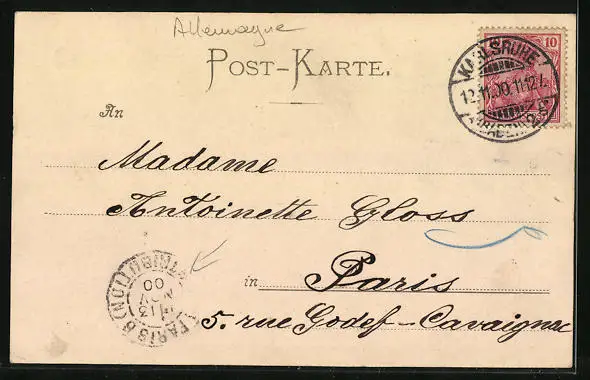 Allemagne
POST-KARTE.
10
KARLSRUHE
12.11.00.11-12V.
(BADEN) 2
An
Madame
Antoinette Gloss
in Paris
5. rue Godef-Cavaignac
DISTRIBUTION
00
NOV
13
PARIS